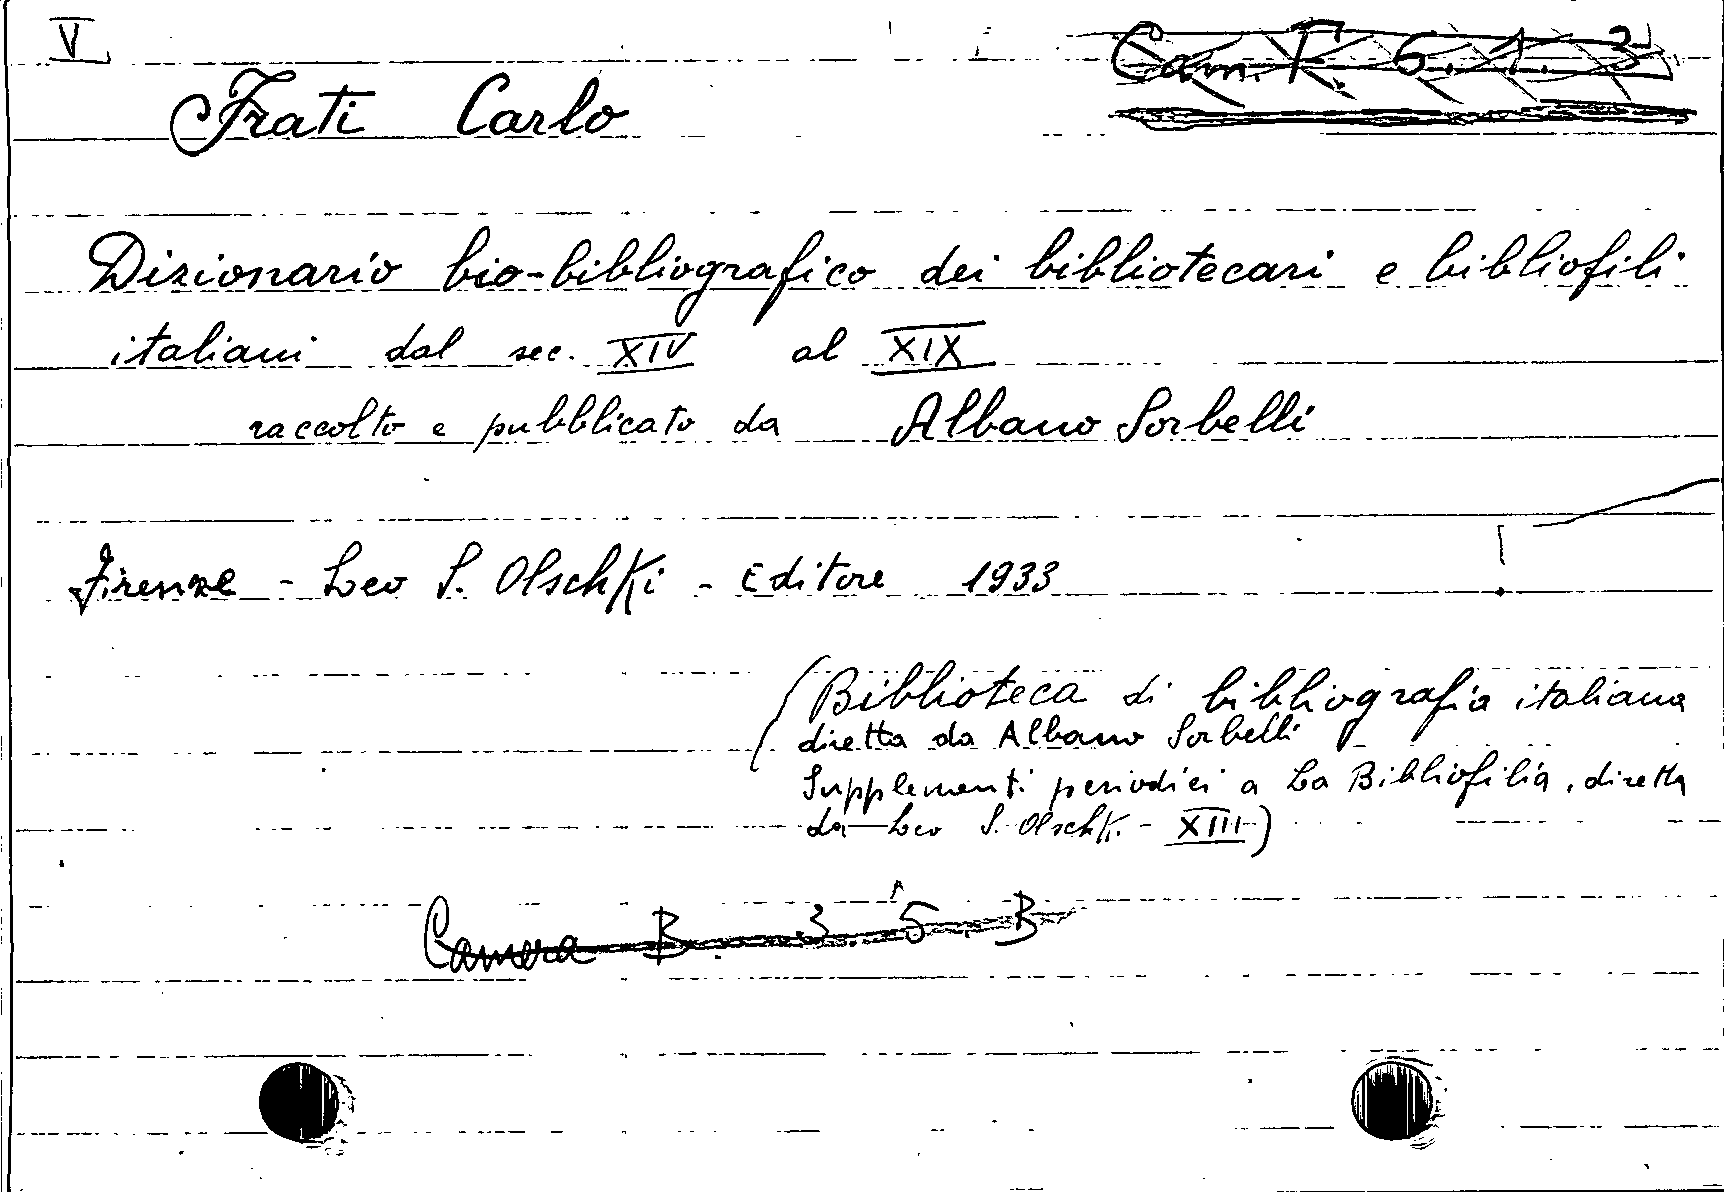 V
Cam. F. 6. 1. 3
Frati Carlo
Dizionario bio-bibliografico dei bibliotecari e bibliofili
italiani dal sec. XIV al XIX
raccolto e pubblicato da Albano Sorbelli
Firenze - Leo S. Olschki - Editore 1933
(Biblioteca di bibliografia italiana
diretta da Albano Sorbelli
Supplementi periodici a La Bibliofilia, diretta
da Leo S. Olschki - XIII)
Camera B. 3. 5. B